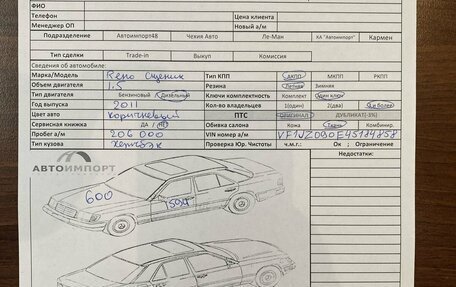 ФИО
Телефон Цена клиента
Менеджер ОП Новый а/м
Подразделение Автоимпорт48 Чехия Авто Ле-Ман ХА "Автоимпорт" Кармен
Тип сделки Trade-in Выкуп Комиссия
Сведения об автомобиле:
Марка/Модель Reno Сценик Тип КПП АКПП МКПП РКПП
Объем двигателя 1.5 Резина Летняя Зимняя
Тип двигателя Бензиновый Дизельный Ключи комплектность Комплект Один ключ
Год выпуска 2011 Кол-во владельцев 1(один) 2(два) 3 и более
Цвет авто коричневый ПТС ОРИГИНАЛ ДУБЛИКАТ(-3%)
Сервисная книжка ДА / Обивка салона Кожа Ткань Комбинир.
Пробег а/м 206 000 VIN номер а/м VF1JZ090E45184858
Тип кузова Хетчбэк Проверка Юр. Чистоты ч.м.г.: Ок ; Ограничение
АВТОИМПОРТ Недостатки:
600